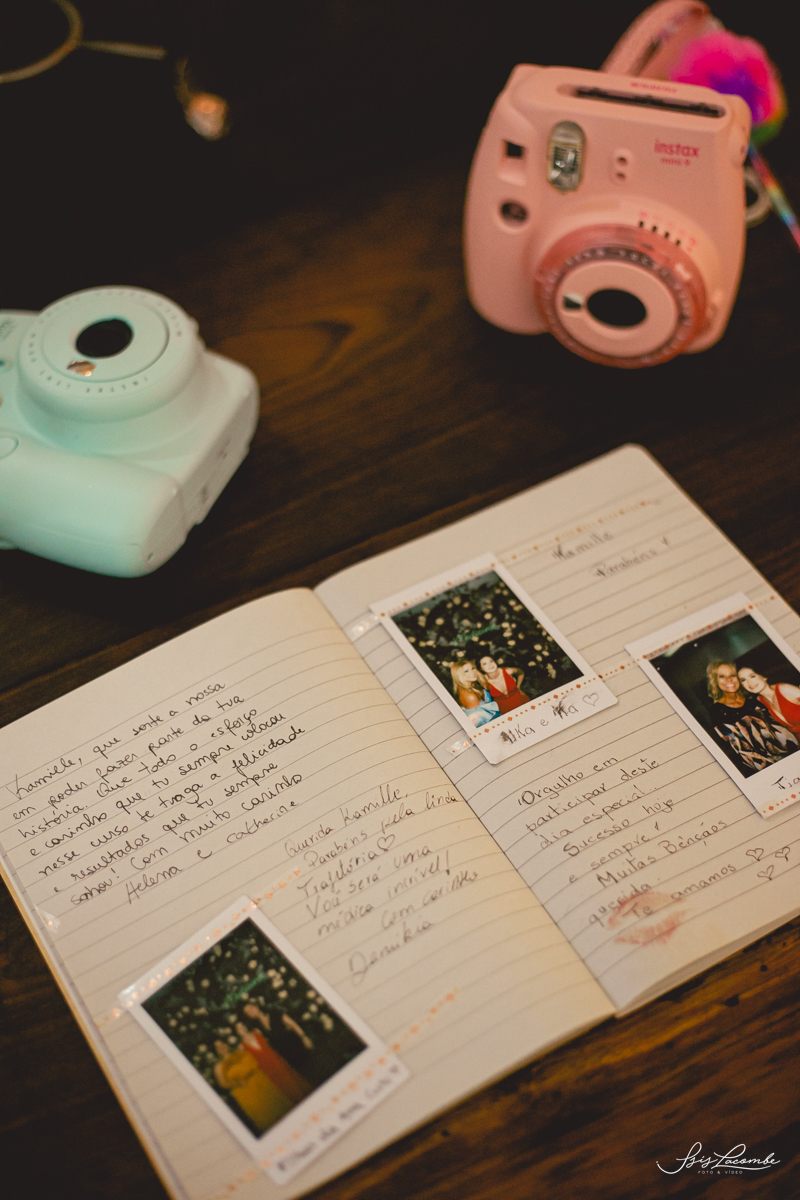 instax
mini 9
Kamille, que sorte a nossa
em poder fazer parte da tua
história. Que todo o esforço
e carinho que tu sempre colocou
nesse curso te traga a felicidade
e resultados que tu sempre
sonhou! Com muito carinho
Helena e Catherine
Querida Kamille,
Parabéns pela linda
Trajetória ♡
Você será uma
médica incrível!
com carinho
Kamille
Parabéns!
e
♡
Orgulho em
participar deste
dia especial.
Sucesso hoje
e sempre!
Muitas Bênçãos
querida.
Te amamos ♡♡♡♡
Isis Lacombe
FOTO & VIDEO